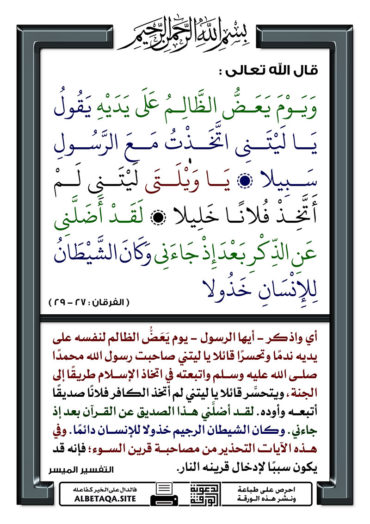 بِسْمِ اللَّهِ الرَّحْمَنِ الرَّحِيمِ
قال الله تعالى :
وَيَوْمَ يَعَضُّ الظَّالِمُ عَلَى يَدَيْهِ يَقُولُ
يَا لَيْتَنِي اتَّخَذْتُ مَعَ الرَّسُولِ
سَبِيلا ۞ يَا وَيْلَتَى لَيْتَنِي لَمْ
أَتَّخِذْ فُلانًا خَلِيلا ۞ لَقَدْ أَضَلَّنِي
عَنِ الذِّكْرِ بَعْدَ إِذْ جَاءَنِي وَكَانَ الشَّيْطَانُ
لِلإِنْسَانِ خَذُولا
( الفرقان : ٢٧ - ٢٩ )
أي واذكر - أيها الرسول - يوم يَعَضُّ الظالم لنفسه على
يديه ندمًا وتحسرًا قائلا يا ليتني صاحبت رسول الله محمدًا
صلى الله عليه وسلم واتبعته في اتخاذ الإسلام طريقًا إلى
الجنة ، ويتحسَّر قائلا يا ليتني لم أتخذ الكافر فلانًا صديقًا
أتبعه وأوده. لقد أضلَّني هذا الصديق عن القرآن بعد إذ
جاءني. وكان الشيطان الرجيم خذولا للإنسان دائمًا. وفي
هذه الآيات التحذير من مصاحبة قرين السوء؛ فإنه قد
يكون سببًا لإدخال قرينه النار.
التفسير الميسر
احرص على طباعة
ونشر هذه الورقة
الدعوية
الورقة
فالدال على الخير كفاعله
ALBETAQA.SITE